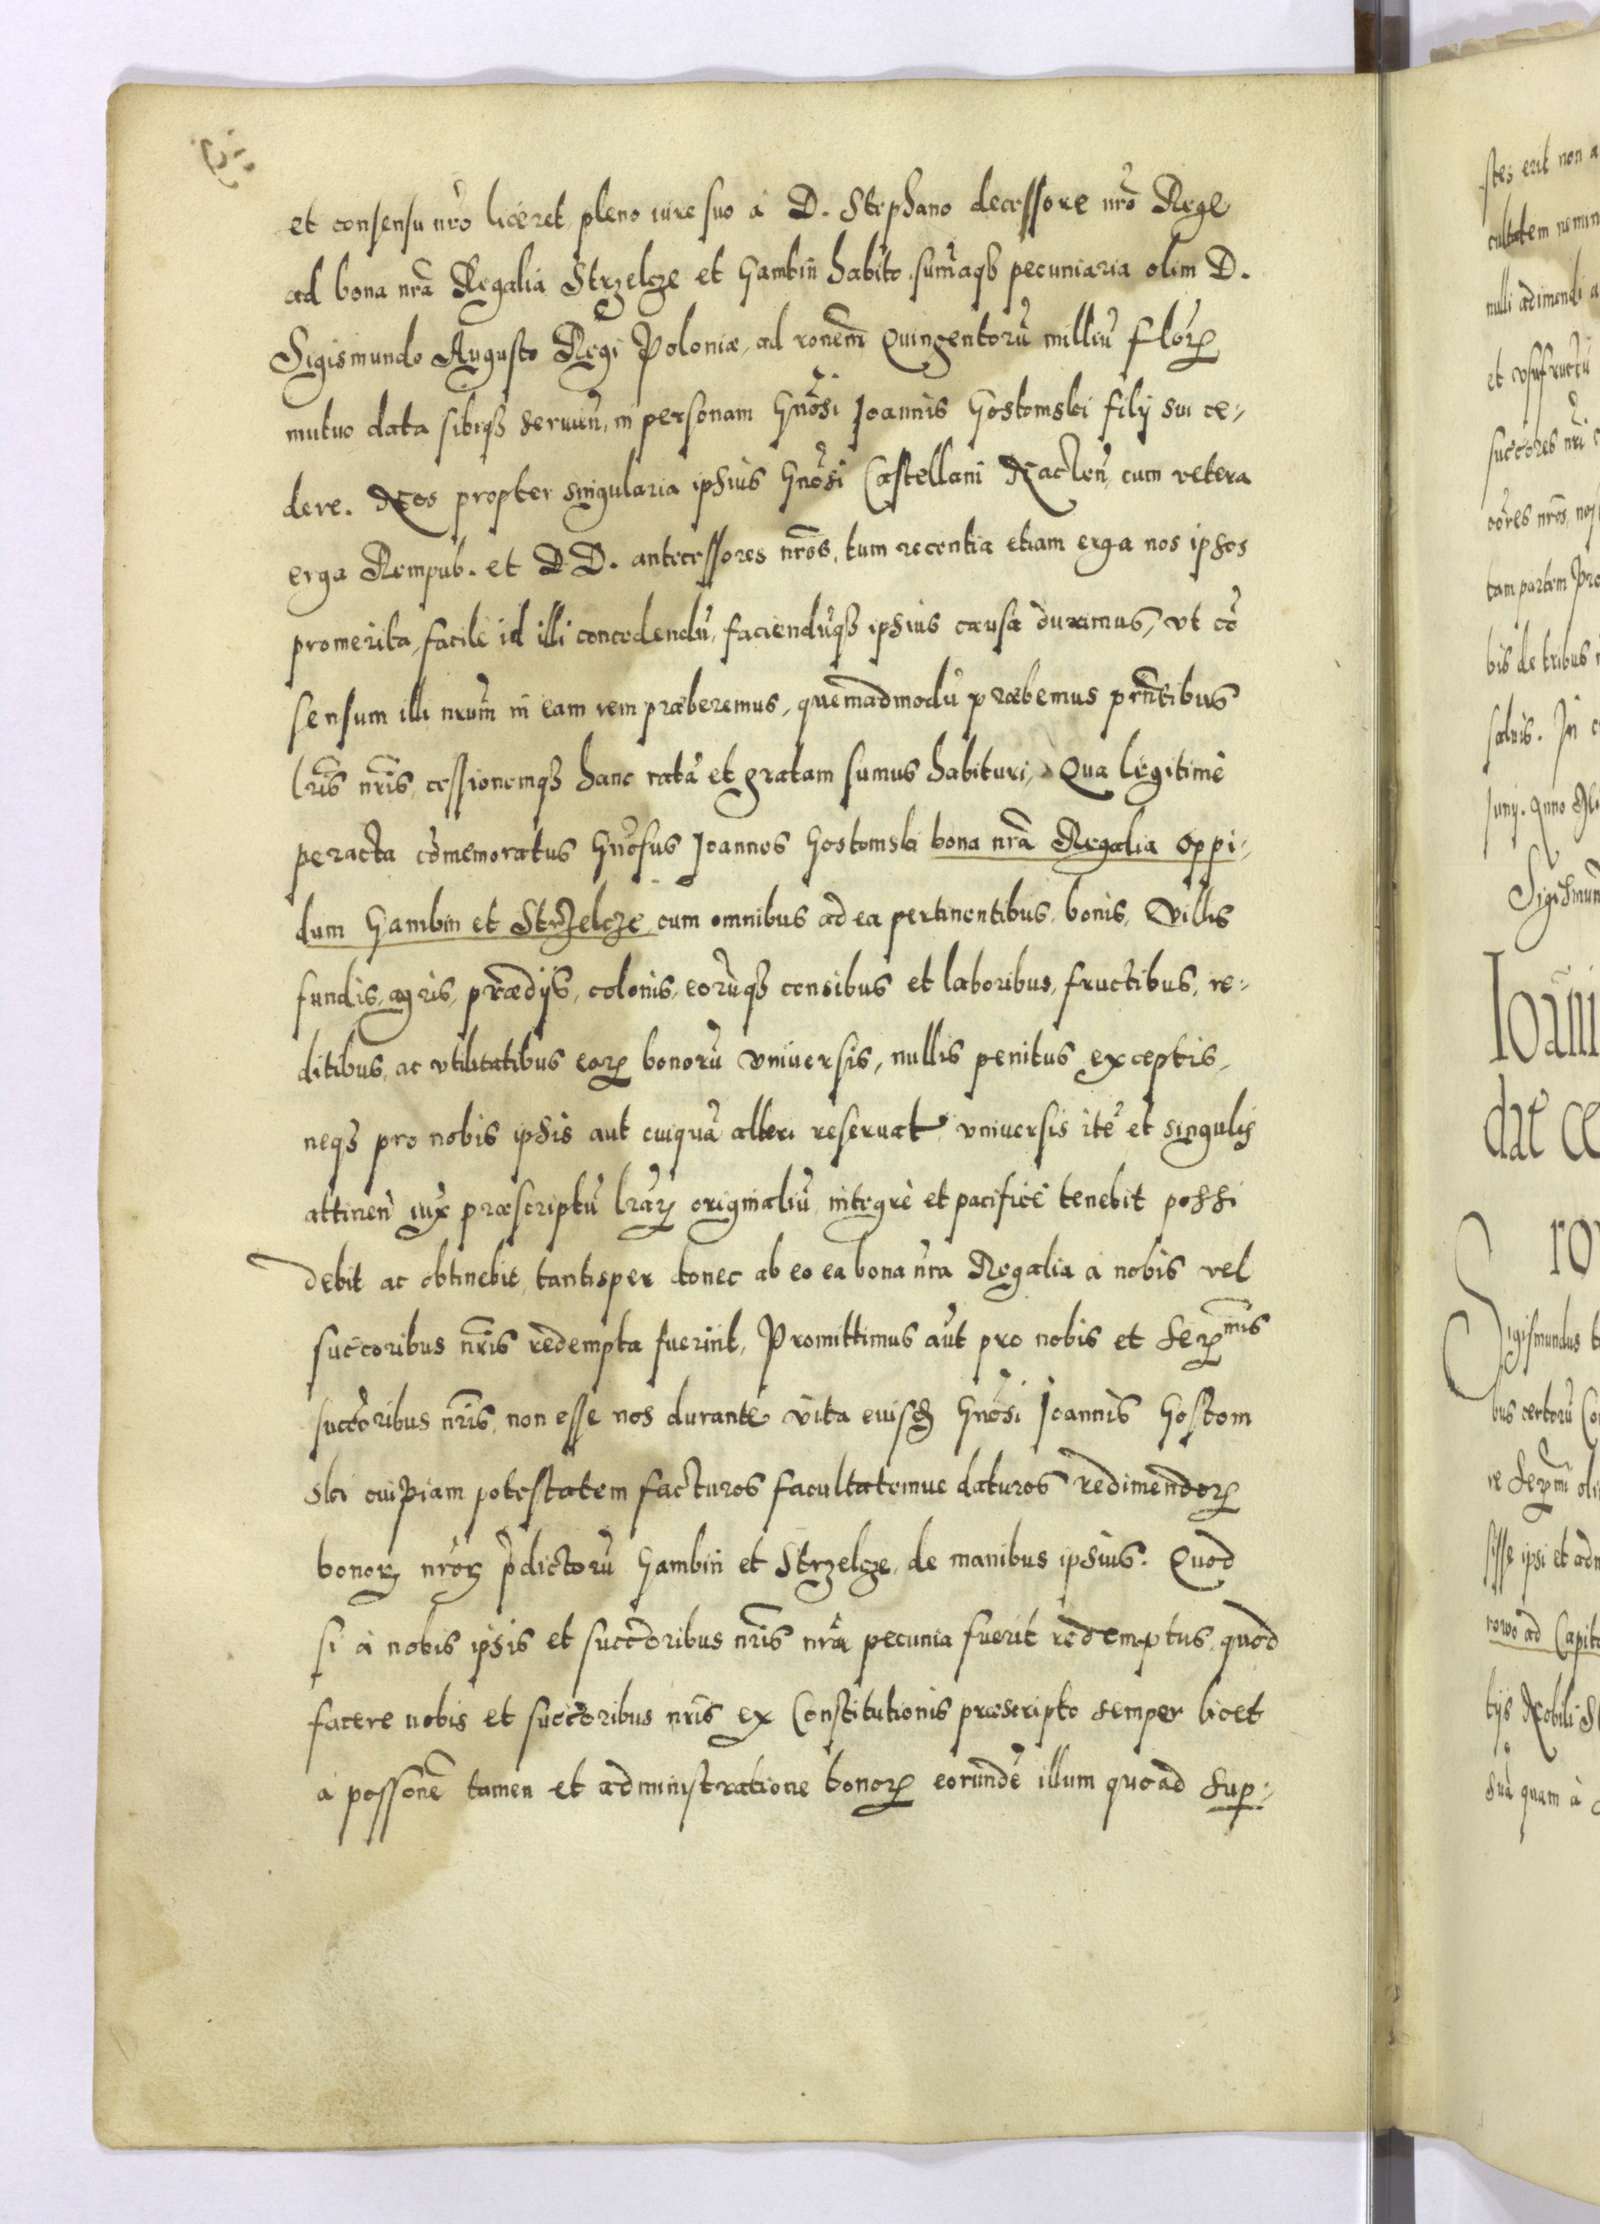 et consensu nr̃o liceret pleno iure suo à D. Stephano decessore nr̃o Rege
ad bona nr̃a Regalia Strzelcze et Gambin habito sum̃aqз pecuniaria olim D.
Sigismundo Augusto Regi Poloniæ, ad rõnem Quingentorũ milliũ Florꝝ
mutuo data sibiqз seruieñ, in personam Gñosi Joannis Gostomski filij sui ce-
dere. Nos propter singularia ipsius Gñosi Castellani Nacleñ, cum vetera
erga Rempub. et DD. antecessores nr̃os, tum recentia etiam erga nos ipsos
promerita, facile id illi concedendũ, faciendũqз ipsius causa duximus, vt cõ
sensum illi nr̃um in eam rem præberemus, quemadmodũ præbemus pñtibus
lr̃is nr̃is, cessionemqз hanc ratã et gratam sumus habituri, Qua legitimè
peracta cõmemoratus Gñosus Joannes Gostomski bona nr̃a Regalia oppi-
dum Gambin et Strzelcze cum omnibus ad ea pertinentibus, bonis, Villis
fundis, agris, prædijs, colonis, eorũqз censibus et laboribus, fructibus, re-
ditibus, ac vtilitatibus eorꝝ bonorũ vniuersis, nullis penitus exceptis,
neqз pro nobis ipsis aut cuiquã alteri reseruat. vniuersis itẽ et singulis
attineñ iux̃ præscriptũ lr̃arꝝ originaliũ integrè et pacificè tenebit possi
debit ac obtinebit, tantisper donec ab eo ea bona nr̃a Regalia à nobis vel
succoribus nr̃is redempta fuerint, Promittimus aũt pro nobis et Serꝝmis
succoribus nr̃is, non esse nos durante vita euisđ Gñosi Joannis Gostom
ski cuipiam potestatem facturos facultatemue daturos redimendorꝝ
bonorꝝ nr̃orꝝ p̃dictorũ Gambin et Strzelcze, de manibus ipsius. Quod
si à nobis ipsis et succoribus nr̃is nr̃a pecunia fuerit redemptus, quod
facere nobis et succoribus nr̃is ex Constitutionis præscripto semper licet
à possõne tamen et administratione bonorꝝ eorundẽ illum quoad sup-